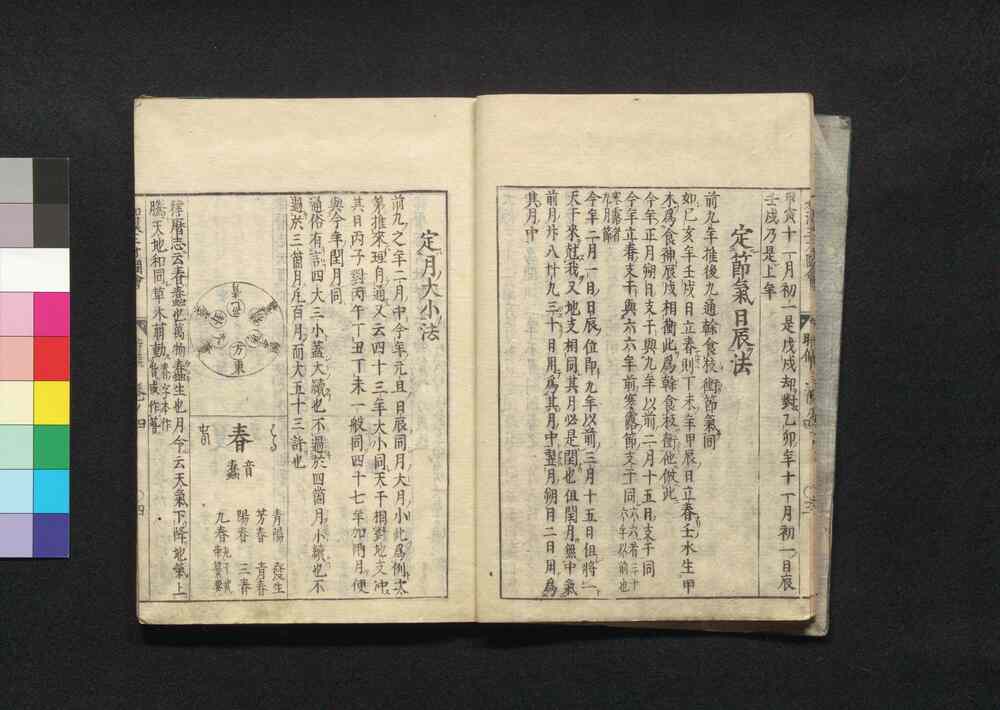 甲寅十一月初一是戊戌却對乙卯年十一月初一日辰
壬戌乃是上年
定節氣日辰法
前九年推後九通幹食枝衝節氣間
如己亥年壬戌日立春則丁未年甲辰日立春壬水生甲
木為食神辰戌相衝此為幹食枝衝他倣此
今年正月朔日支干與九年以前二月十五日支干同
今年立春支干與六六年前寒露節支干同
六六者三十六年以前也
寒露者九月節
今年二月一日日辰位即九年以前三月十五日但將二
天干來尅我又地支相同其月必是閏也但閏月無中氣
前月廿八廿九三十日用為其月中翌月朔日二日用為
其月中
定月大小法
前九之年二月中今年元旦日辰同月大月小此為例次
第推來理自通又云四十三年大小同天干相對地支冲
其日丙子對丙午丁丑丁未一般同四十七年加兩月便
與今年閏月同
通俗有言四大三小蓋大續也不過於四箇月小續也不
過於三箇月凡百月而大五十三許也
東方
春
音蠢
青陽 發生
芳春 青春
陽春 三春
九春
律曆志云春蠢也萬物蠢生也月令云天氣下降地氣上
騰天地和同草木萌動